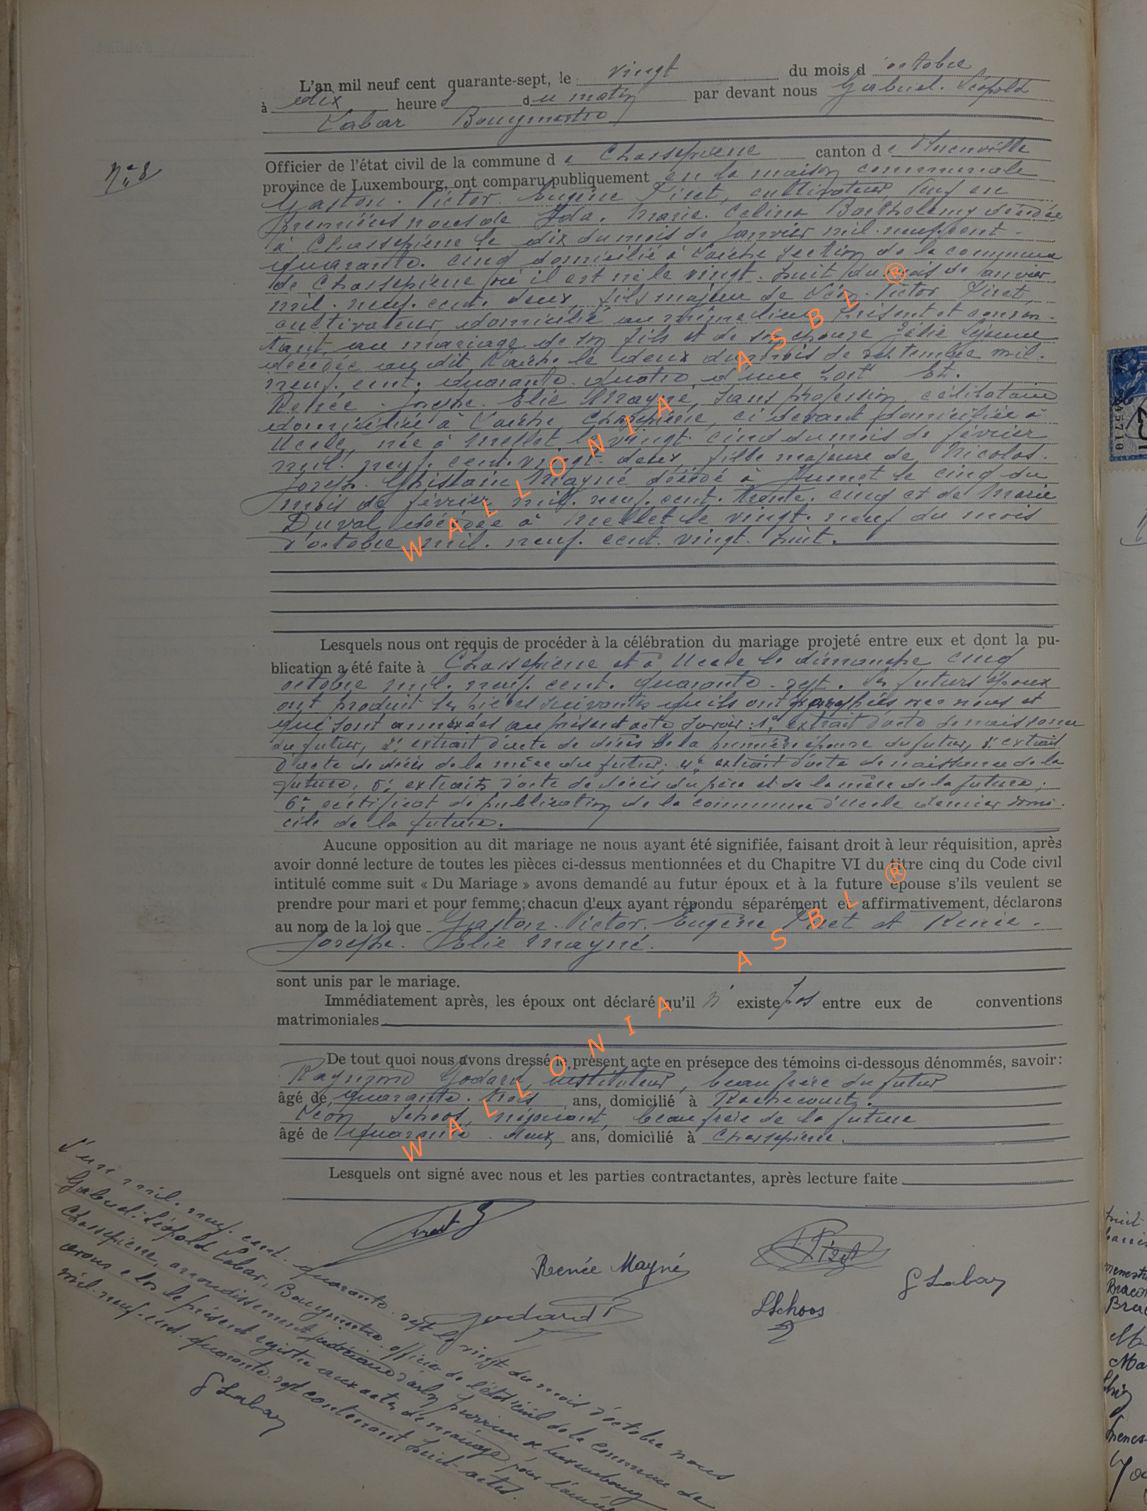 L'an mil neuf cent quarante-sept, le vingt du mois d'octobre
à dix heures du matin par devant nous Gabriel. Léopold
Labar Bourgmestre
n° 8
Officier de l'état civil de la commune de Chassepierre canton de
province de Luxembourg, ont comparu publiquement en la maison communale
Gaston. Victor. Eugène Pinet, cultivateur veuf en
premières noces de Ida. Marie. Celina Barthélemy décédée
à Chassepierre le dix du mois de janvier mil. neuf. cent.
quarante. cinq domicilié à Laiche section de la commune
de Chassepierre où il est né le vingt. huit du mois de janvier
mil. neuf. cent. deux, fils majeur de Léon. Victor Pinet,
cultivateur, domicilié au même lieu, présent et consen-
tant au mariage de son fils et de son épouse Zélie Lejeune
décédée au dit Laiche le deux du mois de septembre mil.
neuf. cent. quarante. quatre, d'une part Et.
Renée. Joseph. Elie Mayné, sans profession, célibataire
domiciliée à Laiche, Chassepierre, ci devant domiciliée à
Uccle, née à Mellet le vingt. cinq du mois de février
mil. neuf. cent. vingt. deux, fille majeure de Nicolas.
Joseph. Ghislain Mayné décédé à Jumet le cinq du
mois de février mil. neuf. cent. trente. cinq et de Marie
Duval décédée à Mellet le vingt. neuf du mois
d'octobre mil. neuf. cent. vingt. huit.
Lesquels nous ont requis de procéder à la célébration du mariage projeté entre eux et dont la pu-
blication a été faite à Chassepierre et à Uccle le dimanche cinq
octobre mil. neuf. cent. quarante. sept. Les futurs époux
ont produit les pièces suivantes qu'ils ont paraphées avec nous et
qui sont annexées au présent acte savoir: 1° extrait d'acte de naissance
du futur, 2° extrait d'acte de décès de la première épouse du futur, 3° extrait
d'acte de décès de la mère du futur, 4° extrait d'acte de naissance de la
future, 5° extraits d'acte de décès du père et de la mère de la future,
6° certificat de publication de la commune d'Uccle dernier domi-
cile de la future.
Aucune opposition au dit mariage ne nous ayant été signifiée, faisant droit à leur réquisition, après
avoir donné lecture de toutes les pièces ci-dessus mentionnées et du Chapitre VI du titre cinq du Code civil
intitulé comme suit « Du Mariage » avons demandé au futur époux et à la future épouse s'ils veulent se
prendre pour mari et pour femme; chacun d'eux ayant répondu séparément et affirmativement, déclarons
au nom de la loi que Gaston. Victor. Eugène Pinet et Renée.
Joseph. Elie Mayné.
sont unis par le mariage.
Immédiatement après, les époux ont déclaré qu'il n'existe pas entre eux de conventions
matrimoniales
De tout quoi nous avons dressé le présent acte en présence des témoins ci-dessous dénommés, savoir:
Raymond Godard, instituteur, beau frère du futur
âgé de quarante. trois ans, domicilié à Rachecourt.
Léon Schoos, négociant, beau frère de la future
âgé de quarante. deux ans, domicilié à Chassepierre.
Lesquels ont signé avec nous et les parties contractantes, après lecture faite
Renée Mayné
GLabar
Godard R
LSchoos
L'an mil. neuf. cent. quarante. sept le vingt du mois d'octobre nous
Gabriel. Léopold Labar, Bourgmestre officier de l'état civil de la commune de
Chassepierre, arrondissement judiciaire d'Arlon province de Luxembourg
avons clos le présent registre aux actes de mariage pour l'année
mil. neuf. cent. quarante. sept contenant huit actes.
GLabar
WALLONIA ASBL ®
WALLONIA ASBL ®